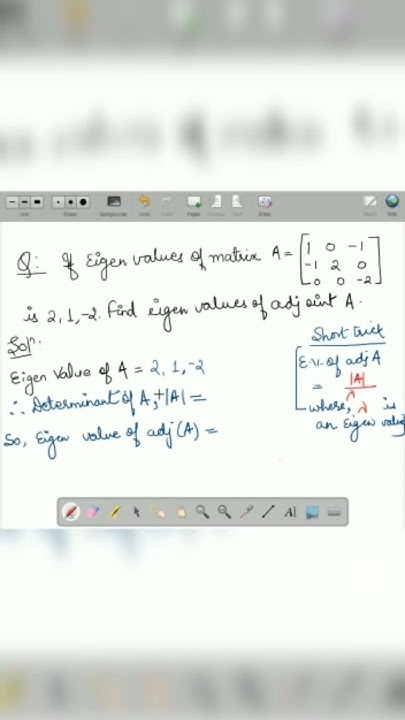 Line Eraser Backgrounds Undo Pages Erase
Q: If Eigen values of matrix A = [1 0 -1
-1 2 0
0 0 -2]
is 2, 1, -2. Find eigen values of adjoint A.
Solⁿ:
Eigen Value of A = 2, 1, -2
∴ Determinant of A, |A| =
So, Eigen value of adj(A) =
Short trick
E.V. of adj A
= |A|
λ
where, λ is
an Eigen value